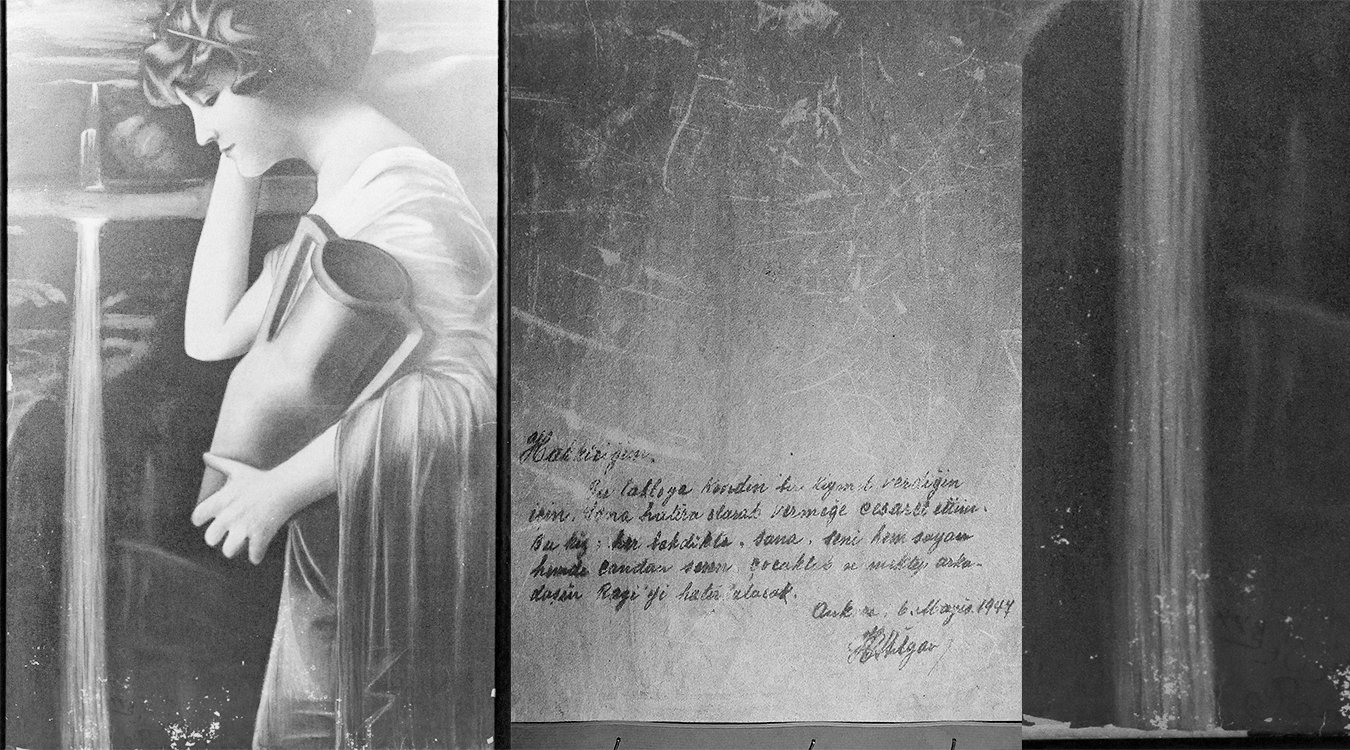 Hakkıcığım.
Bu tabloya kendin bir kıymet verdiğin
için, sana hatıra olarak vermeğe cesaret ettim.
Bu kız; her bakdıkla, sana, seni hem sayan
hemde candan seven çocukluk ve mektep arka-
daşın Razi'yi hatırlatacak.
6. Mayıs. 1947